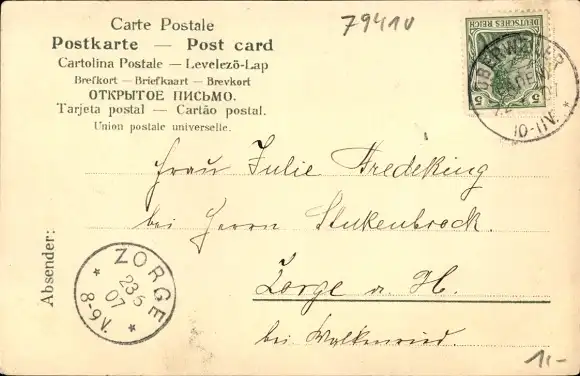 Carte Postale
Postkarte — Post card
Cartolina Postale — Levelező-Lap
Brefkort — Briefkaart — Brevkort
ОТКРЫТОЕ ПИСЬМО.
Tarjeta postal — Cartão postal.
Union postale universelle.
7941v
DEUTSCHES REICH
5 5
OBERWEILER
BADEN
07
10-11V.
Frau Julie Bredeking
bei Herrn Stukenbrock.
Zorge a. H.
bei Walkenried.
Absender:
ZORGE
23 5
07
8-9V.
1,-